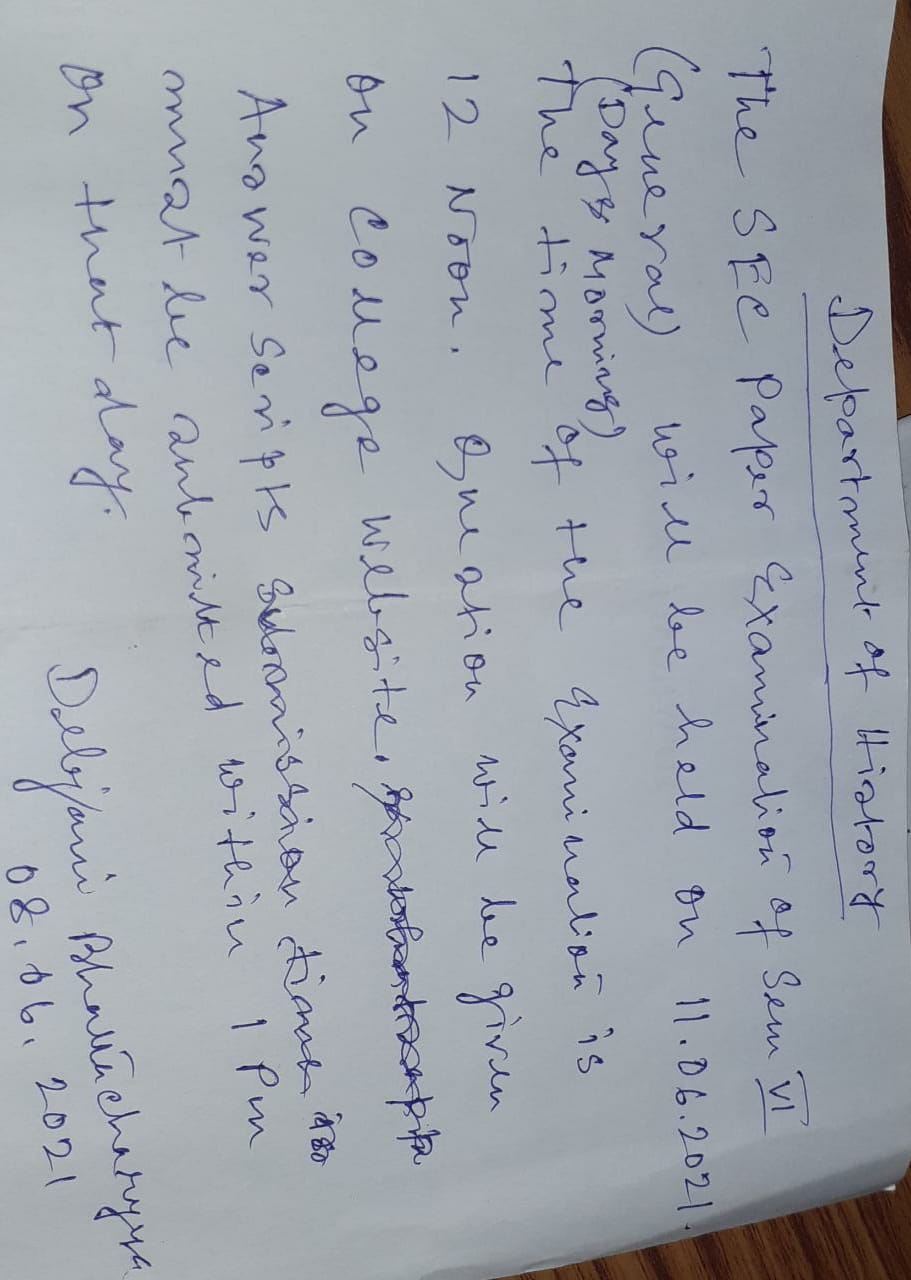 Department of History
The SEC Paper Examination of Sem VI
(General) will be held on 11.06.2021.
(Day & Morning)
The time of the Examination is
12 Noon. Question will be given
on College Website.
Answer Scripts submission time is
must be submitted within 1 Pm
on that day.
Debjani Bhattacharyya
08.06.2021